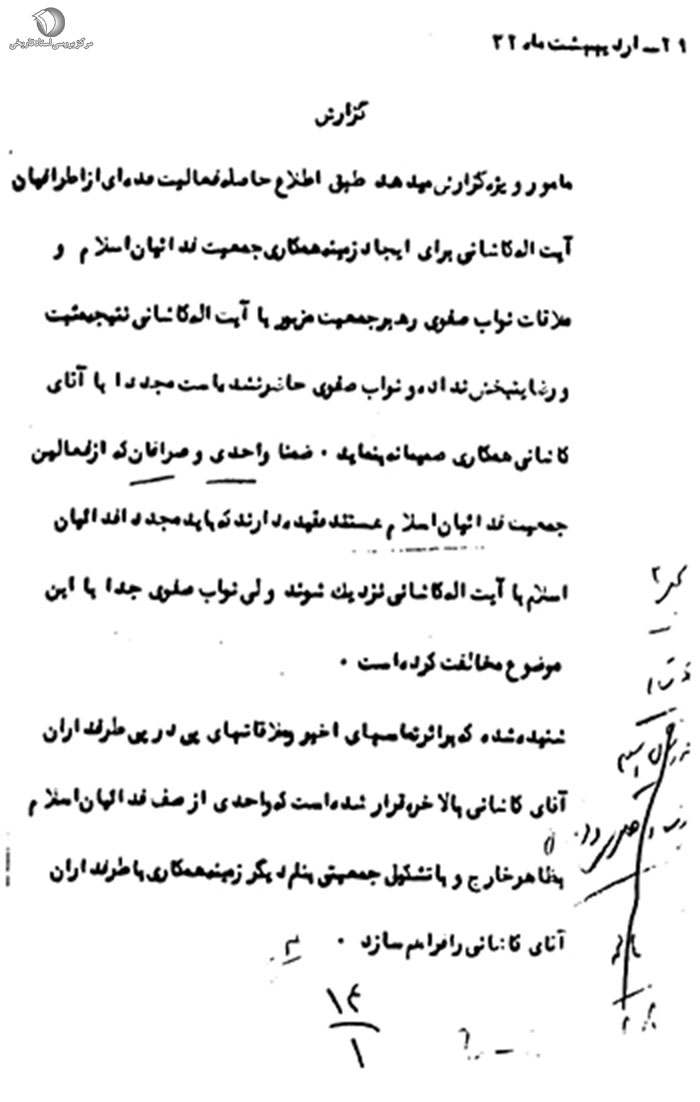 مرکز بررسی اسناد تاریخی
۲۹ــ اردیبهشت ماه ۳۲
گزارش
مامور ویژه گزارش میدهد طبق اطلاع حاصله فعالیت عده‌ای از اطرافیان
آیت اله کاشانی برای ایجاد زمینه همکاری جمعیت فدائیان اسلام و
ملاقات نواب صفوی رهبر جمعیت مزبور با آیت اله کاشانی نتیجه مثبت
و رضایتبخش نداده و نواب صفوی حاضر نشده است مجددا با آقای
کاشانی همکاری صمیمانه بنماید ۰ ضمنا واحدی و صرافان که از فعالین
جمعیت فدائیان اسلام هستند عقیده دارند که باید مجددا فدائیان
اسلام با آیت اله کاشانی نزدیک شوند ولی نواب صفوی جدا با این
موضوع مخالفت کرده است ۰
شنیده شده که بر اثر تماسهای اخیر و ملاقاتهای پی در پی طرفداران
آقای کاشانی بالاخره قرار شده است که واحدی از صف فدائیان اسلام
بظاهر خارج و با تشکیل جمعیتی بنام دیگر زمینه همکاری با طرفداران
آقای کاشانی را فراهم سازد ۰
۱۴
۱